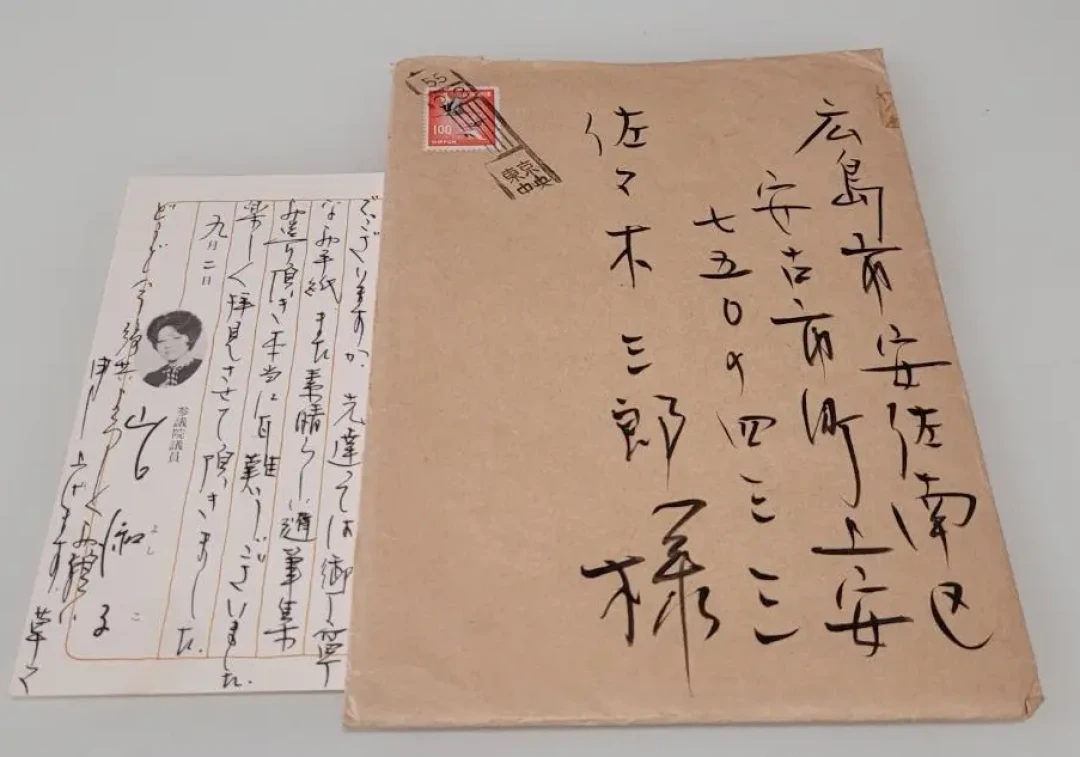 広島市安佐南区
安古市町上安
七五〇の四三三
佐々木三郎様
100
NIPPON
でございますか 先達っては御丁寧
なお手紙、また素晴らしい随筆集
お送り頂き本当に有難うございました.
楽しく拝見させて頂きました.
九月二日
参議院議員
山口淑子
よしこ
どうぞ今後共よろしくお願い
申し上げます. 草々